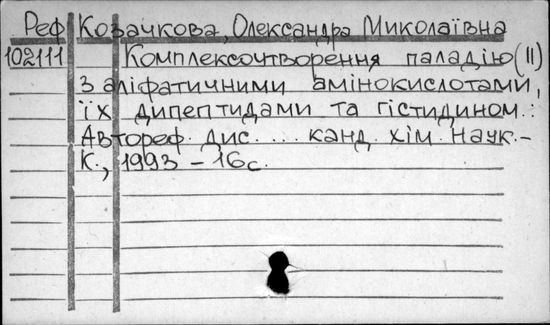 Реф Козачкова, Олександра Миколаївна
102111 Комплексоутворення паладію (II)
з аліфатичними амінокислотами,
їх дипептидами та гістидином.:
Автореф. дис. ... канд. хім. наук.-
К., 1993 - 16с.